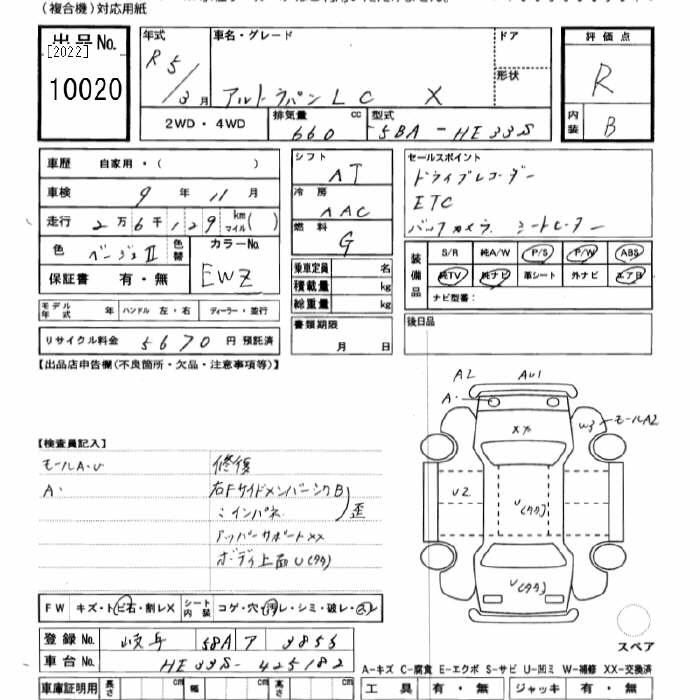 (複合機)対応用紙
出品No.
[2022]
10020
年式
R5/3月
車名・グレード
アルトラパンLC X
ドア
形状
評価点
R
内装
B
2WD・4WD
排気量
660 cc
型式
5BA-HE33S
車歴 自家用・( )
車検 9年 11月
走行 2万6千129 km マイル( )
色 ベージュII 色替
カラーNo.
EWZ
保証書 有・無
モデル年式 年 ハンドル 左・右 ディーラー・並行
リサイクル料金 5670 円 預託済
シフト
AT
冷房
AAC
燃料
G
乗車定員 名
積載量 kg
総重量 kg
書類期限
月 日
セールスポイント
ドライブレコーダー
ETC
バックカメラ シートヒーター
装備品
S/R 純A/W P/S P/W ABS
純TV 純ナビ 革シート 外ナビ エアB
ナビ型番:
後日品
【出品店申告欄(不良箇所・欠品・注意事項等)】
【検査員記入】
モールA・U
A・
修復
右Fサイドメンバーインクβ
〃インパネ
歪
アッパーサポートXX
ボディ上面U(タタ)
A2 AU1
A・
Xア
W3 モールA2
U2
U(タタ)
U(タタ)
スペア
FW キズ・トビ石・割レX シート内装 コゲ・穴・汚レ・シミ・破レ・
登録No. 岐阜 58A ア 3855
車台No. HE33S-425182
A-キズ C-腐食 E-エクボ S-サビ U-凹ミ W-補修 XX-交換済
車庫証明用 長さ cm 幅 cm 高さ cm
工具 有・無 ジャッキ 有・無